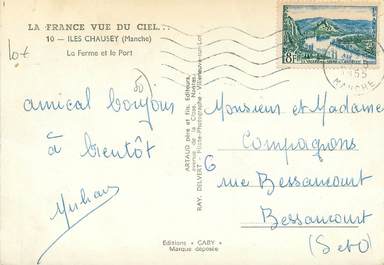 LA FRANCE VUE DU CIEL...
10 — ILES CHAUSEY (Manche)
La Ferme et le Port
10t
amical bonjour
à bientôt
ARTAUD père et fils, Éditeurs,
avenue de la Close, Nantes
RAY. DELVERT - Pilote-Photographe - Villeneuve-sur-Lot
Éditions "GABY"
Marque déposée
18F
1955
MANCHE
Monsieur et Madame
Compagnons
6 rue Bessancourt
Bessancourt
(S et O)